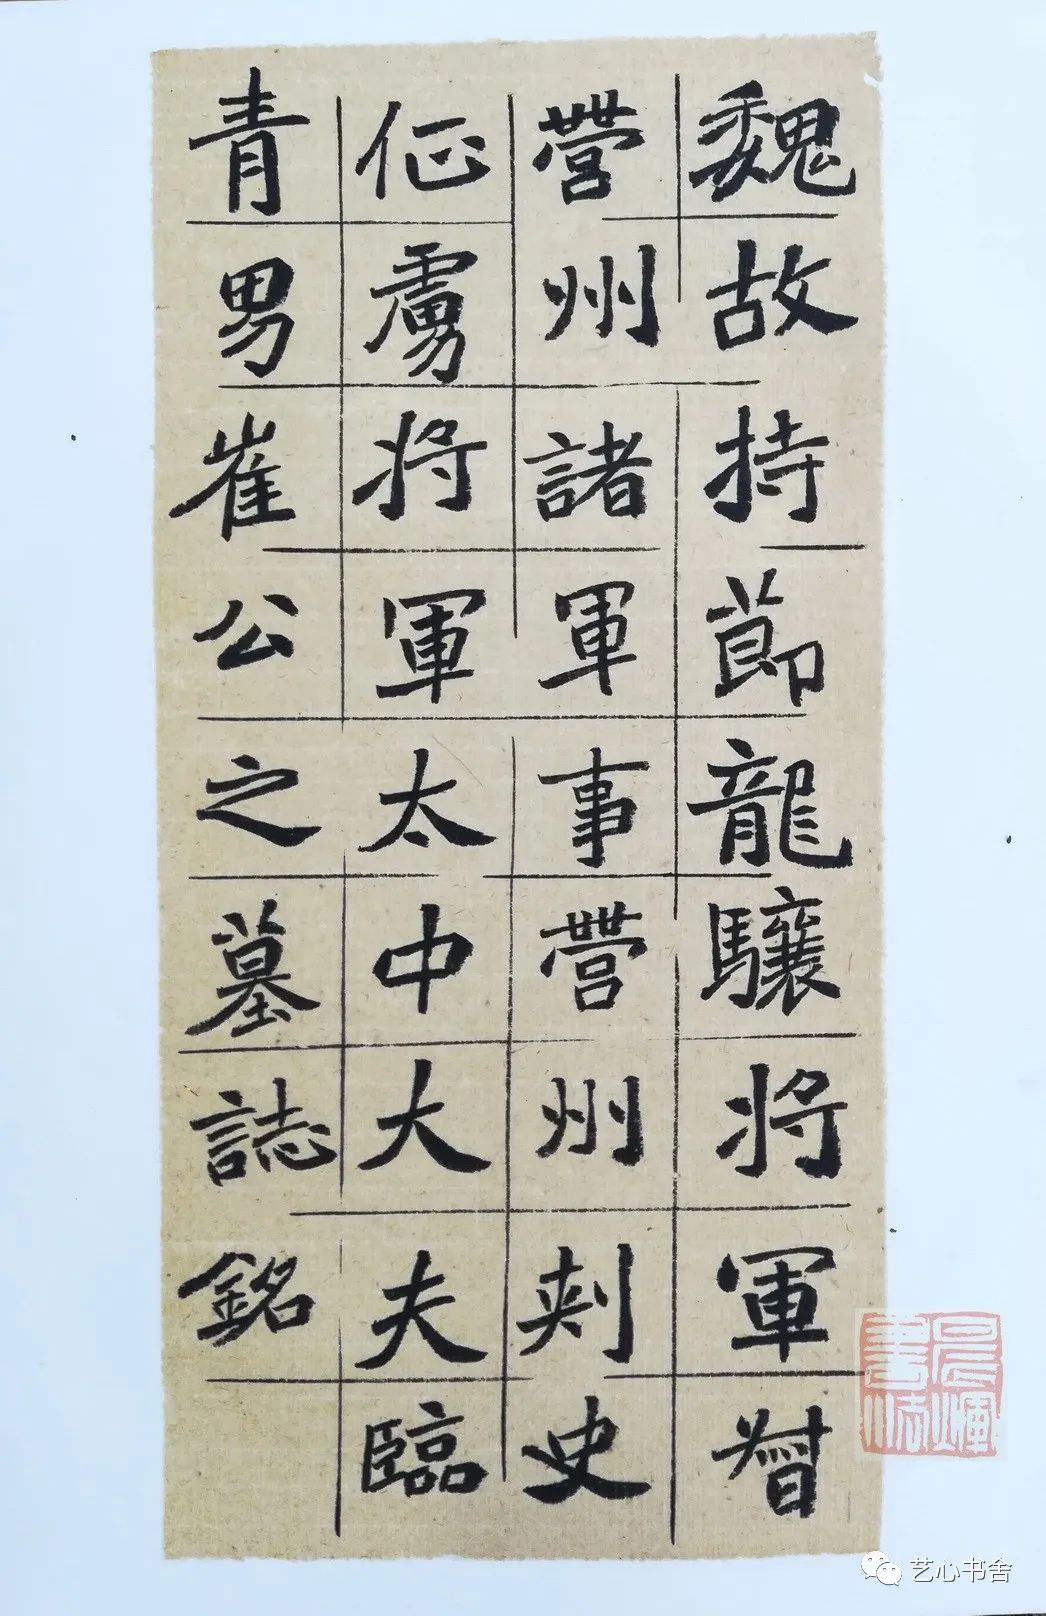 魏故持節龍驤將軍督
營州諸軍事營州刺史
征虜將軍太中大夫臨
青男崔公之墓誌銘
艺心书舍